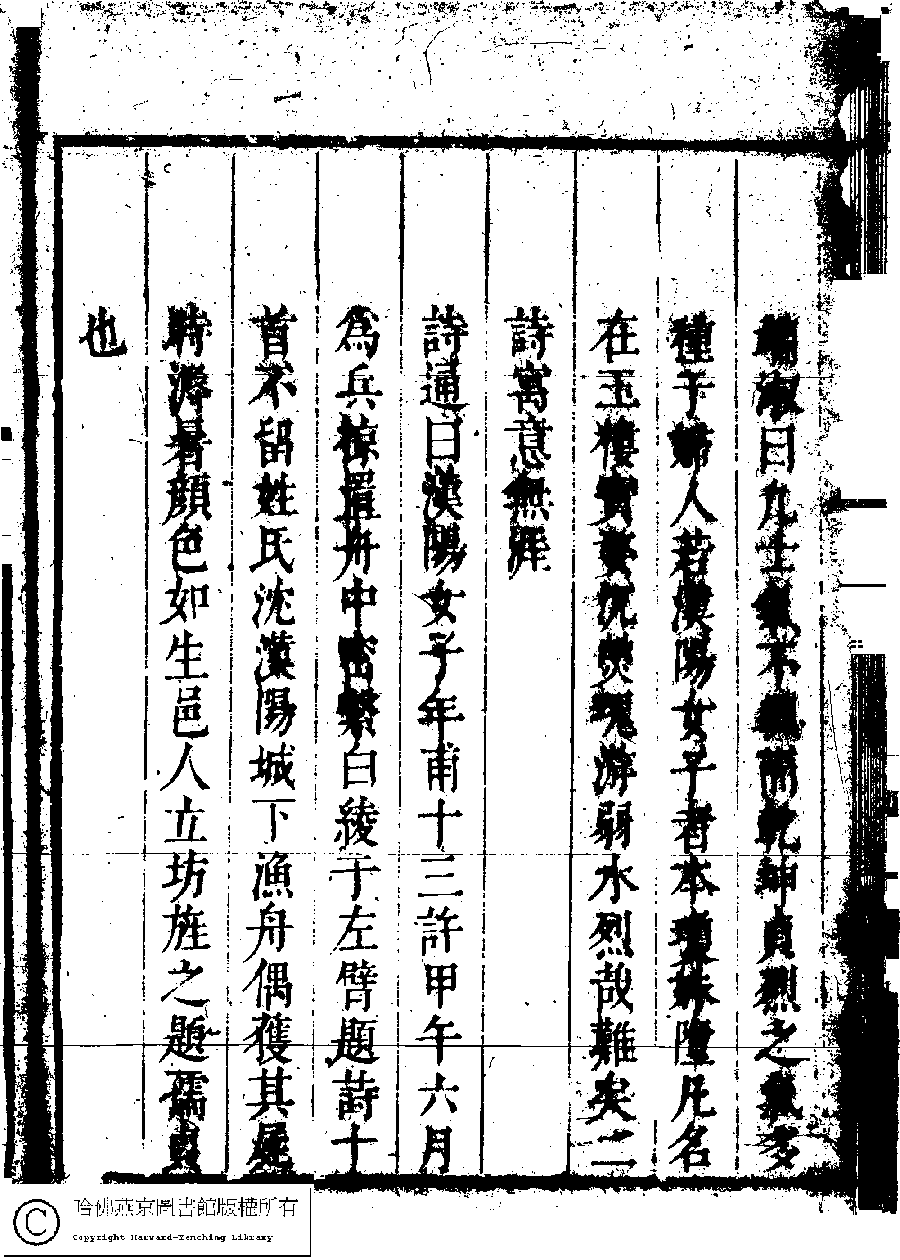 端淑曰九土氣不鍾而乾坤貞烈之氣多
種于婦人若漢陽女子者本瓊姝墮凡名
在玉樓寶婺沉 魂游弱水烈哉難矣二
詩寓意無涯
詩通曰漢陽女子年甫十三許甲午六月
為兵掠置舟中密繫白綾于左臂題詩十
首不留姓氏沈漢陽城下漁舟偶獲其屍
時溽暑顏色如生邑人立坊旌之題孺貞
也
哈佛燕京圖書館版權所有
Copyright Harvard-Yenching Library